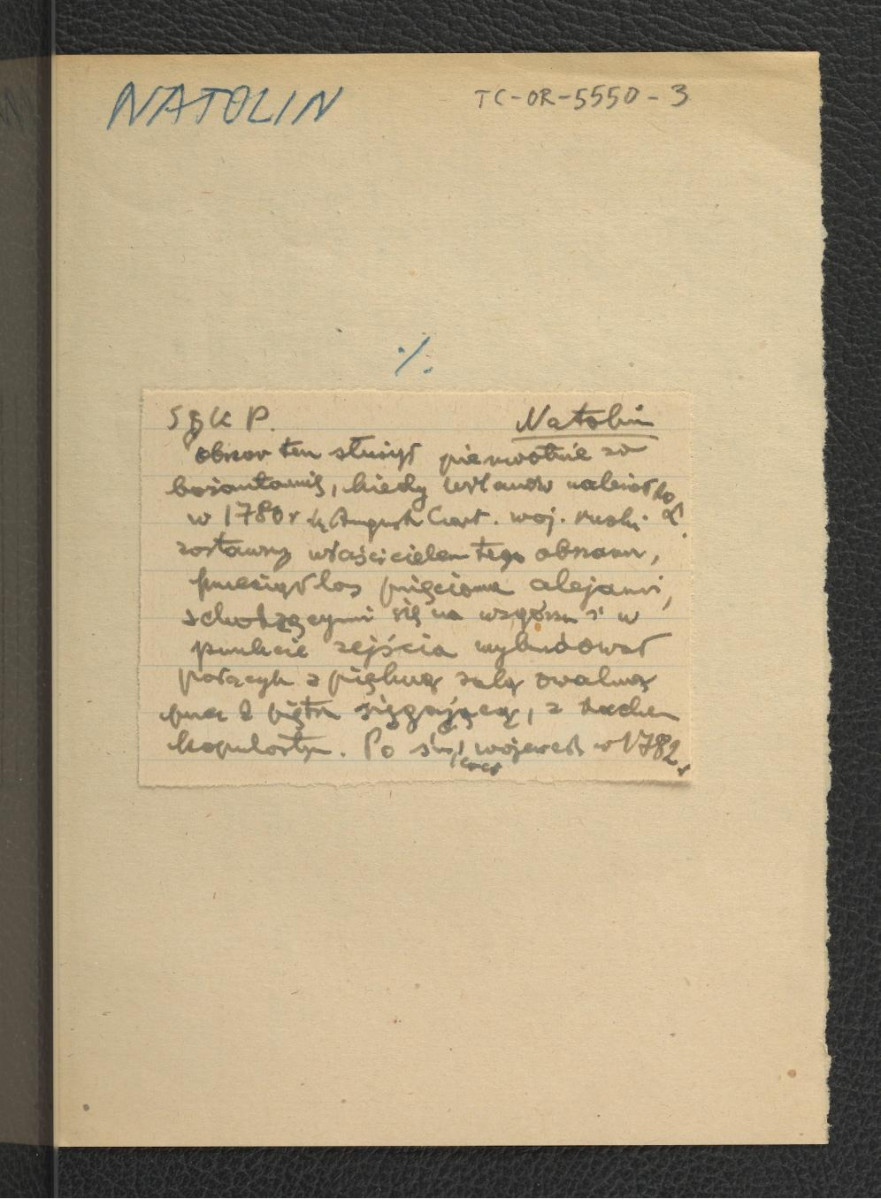 NATOLIN
TC-OR-5550-3
./.
SgKP. Natolin
obszar ten służył pierwotnie za
bażantarnię, kiedy Wilanów należał do
w 1780 r August Czart. woj. ruski
zostawszy właścicielem tego obszaru,
przeciął las pięcioma alejami,
schodzącymi się na wzgórzu i w
punkcie zejścia wybudował
pałacyk z piękną salą owalną
przez 2 piętra sięgającą, z dachem
kopulastym. Po śm. wojewody w 1782 r